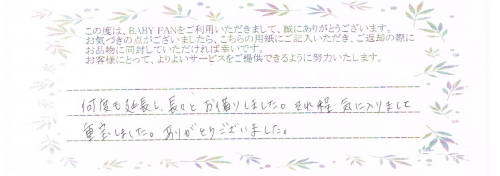 この度は、BABY FANをご利用いただきまして、誠にありがとうございます。
お気づきの点がございましたら、こちらの用紙にご記入いただき、ご返却の際に
お品物に同封していただければ幸いです。
お客様にとって、よりよいサービスをご提供できるように努力いたします。
何度も延長し、長々とお借りしました。それ程 気に入りまして
重宝しました。ありがとうございました。